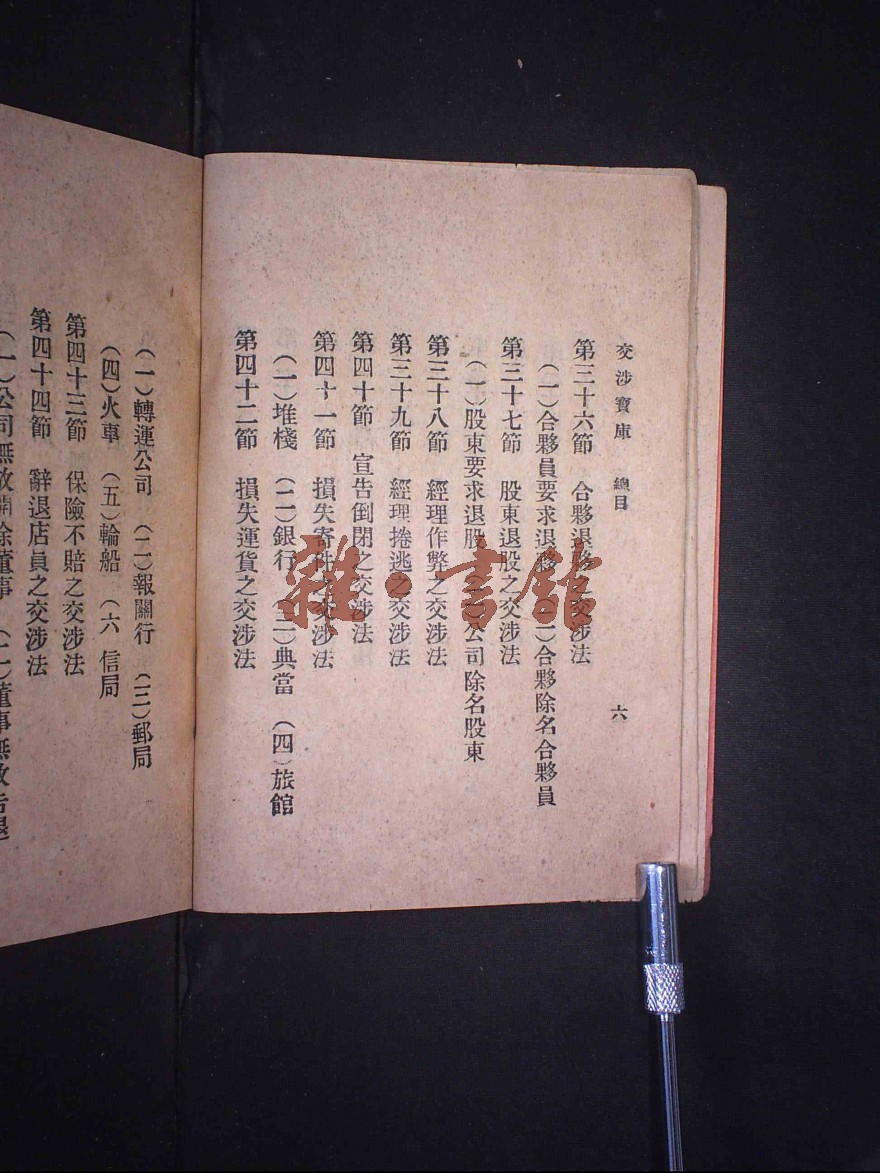 交涉寶庫 總目 六
第三十六節 合夥退夥之交涉法
(一)合夥員要求退夥 (二)合夥除名合夥員
第三十七節 股東退股之交涉法
(一)股東要求退股 (二)公司除名股東
第三十八節 經理作弊之交涉法
第三十九節 經理捲逃之交涉法
第四十節 宣告倒閉之交涉法
第四十一節 損失寄件之交涉法
(一)堆棧 (二)銀行 (三)典當 (四)旅館
第四十二節 損失運貨之交涉法
(一)轉運公司 (二)報關行 (三)郵局
(四)火車 (五)輪船 (六)信局
第四十三節 保險不賠之交涉法
第四十四節 辭退店員之交涉法
(一)公司無故開除董事 (二)董事無故告退
雜·書館